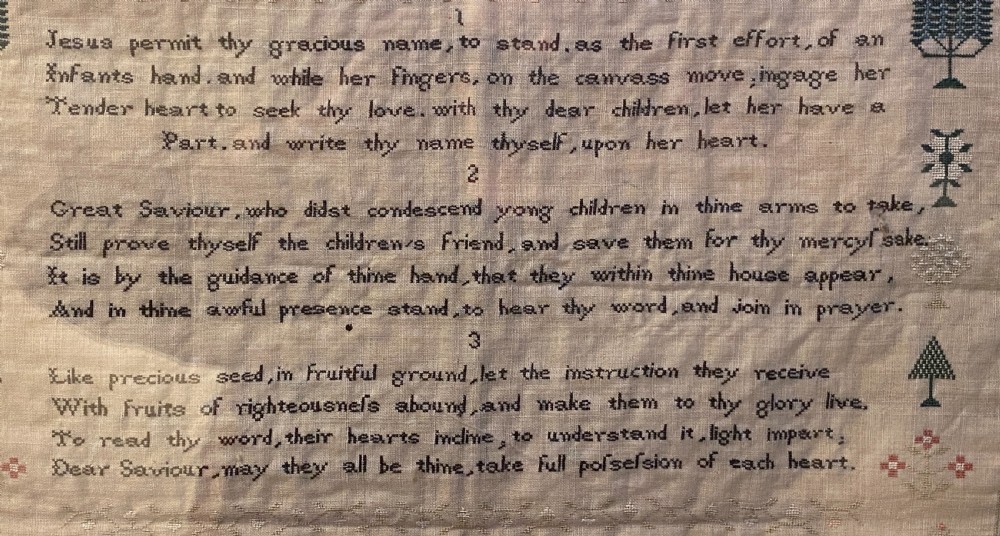 1
Jesus permit thy gracious name, to stand. as the first effort, of an
Infants hand. and while her fingers, on the canvass move, ingage her
Tender heart to seek thy love. with thy dear children, let her have a
Part. and write thy name thyself, upon her heart.
2
Great Saviour, who didst condescend yong children in thine arms to take,
Still prove thyself the children's friend, and save them for thy mercyſ sake.
It is by the guidance of thine hand, that they within thine house appear,
And in thine awful presence stand, to hear thy word, and join in prayer.
3
Like precious seed, in fruitful ground, let the instruction they receive
With fruits of righteousneſs abound, and make them to thy glory live.
To read thy word, their hearts incline, to understand it, light impart;
Dear Saviour, may they all be thine, take full poſseſsion of each heart.